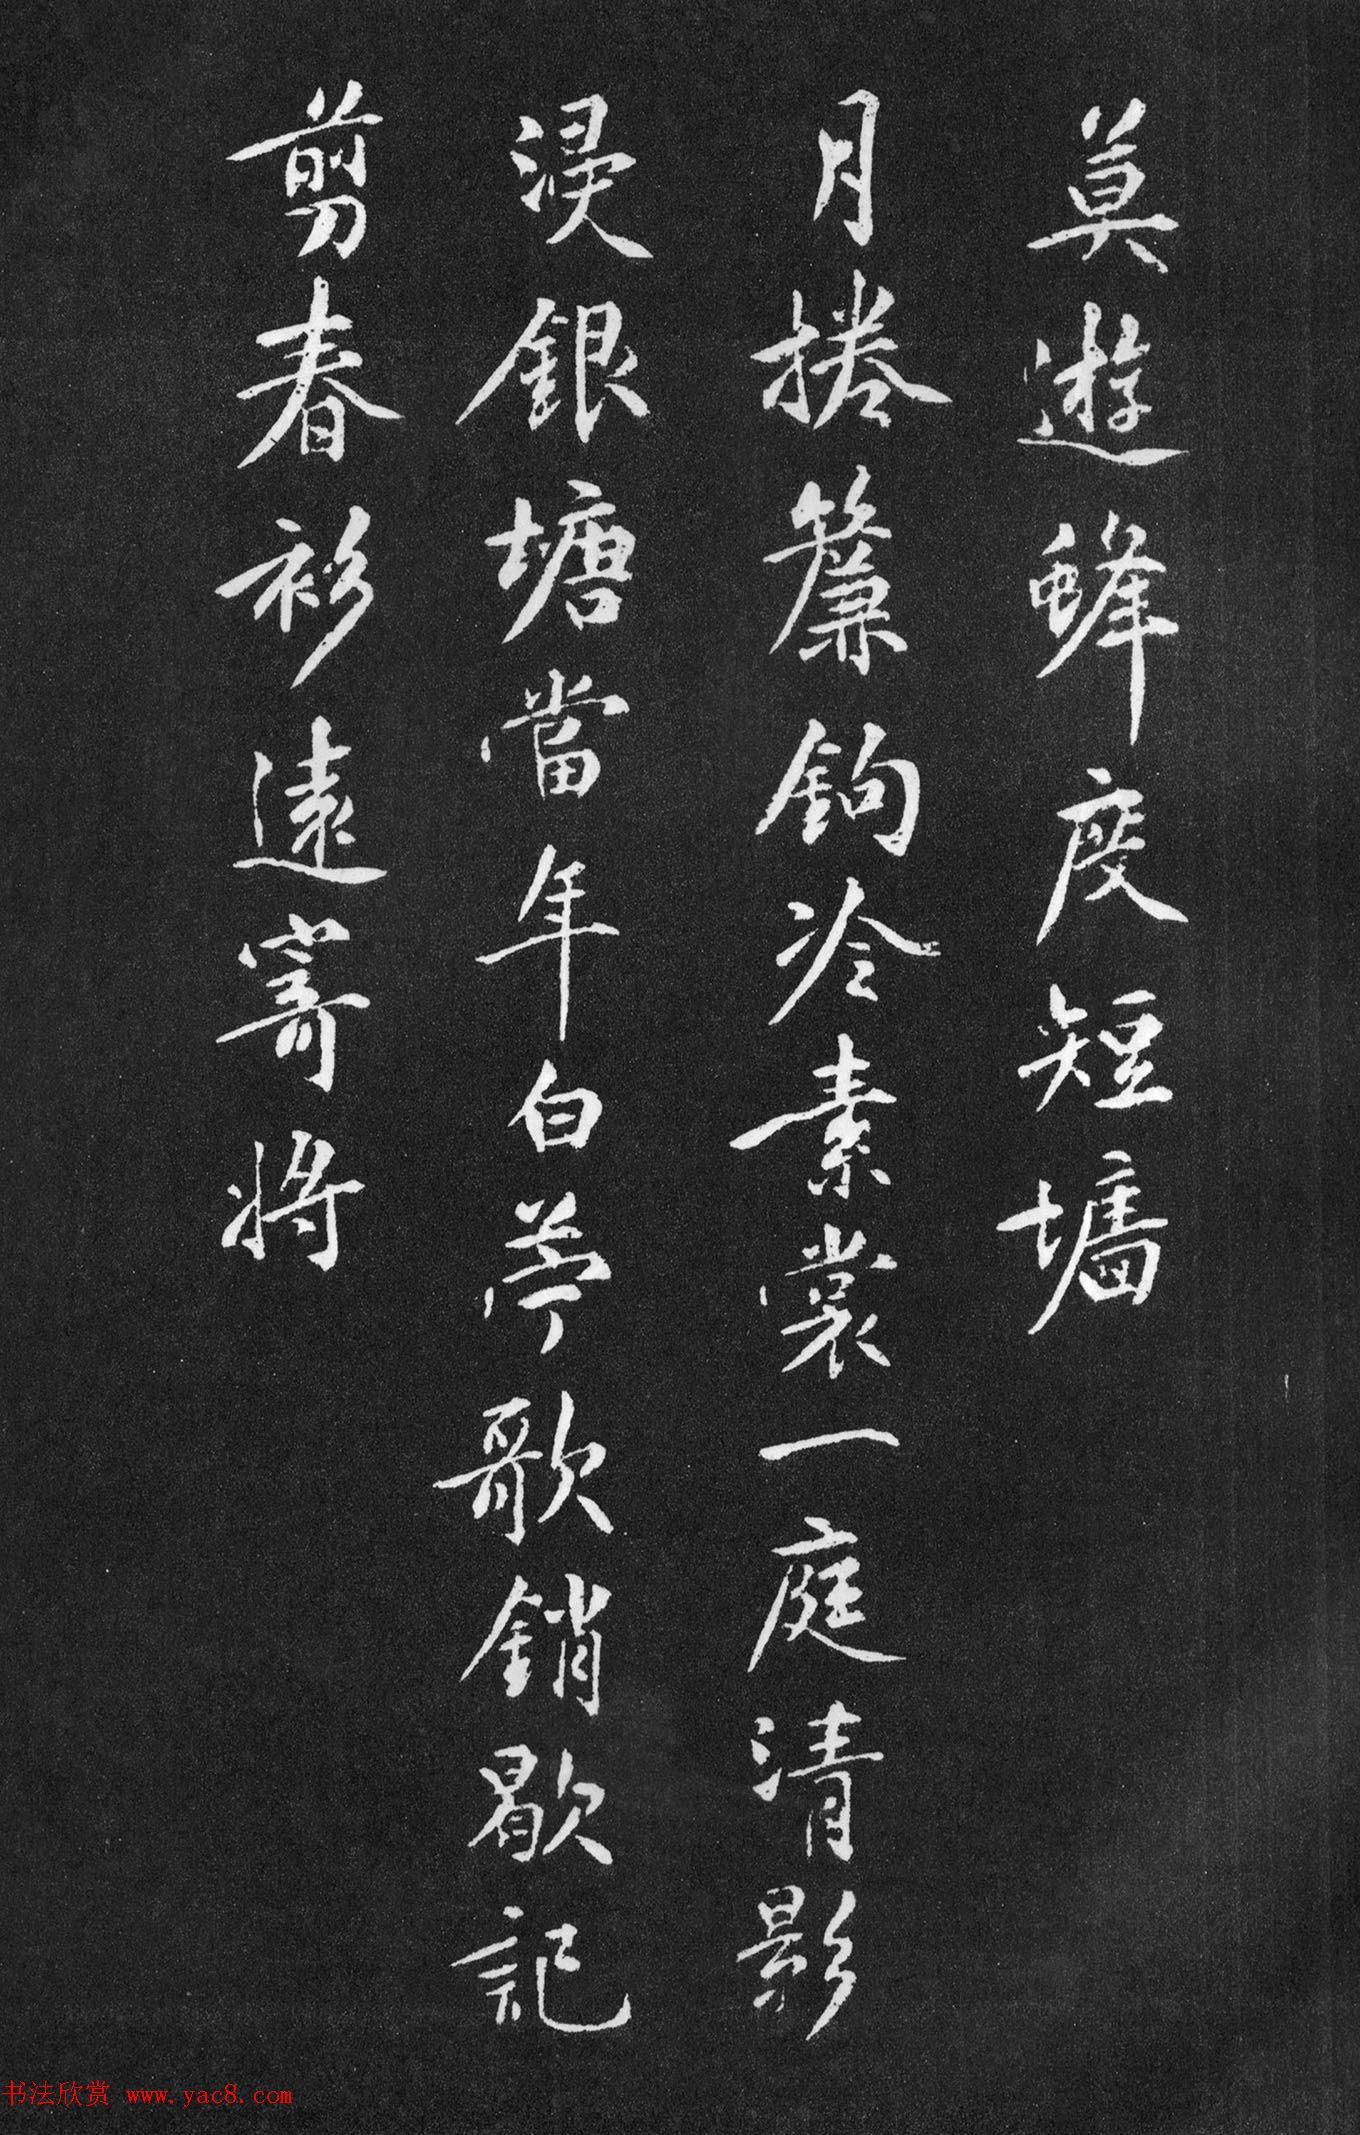 莫遊蜂度短墻
月捲簾鉤冷素裳一庭清影
浸銀塘當年白苧歌銷歇記
剪春衫遠寄將
书法欣赏 www.yac8.com